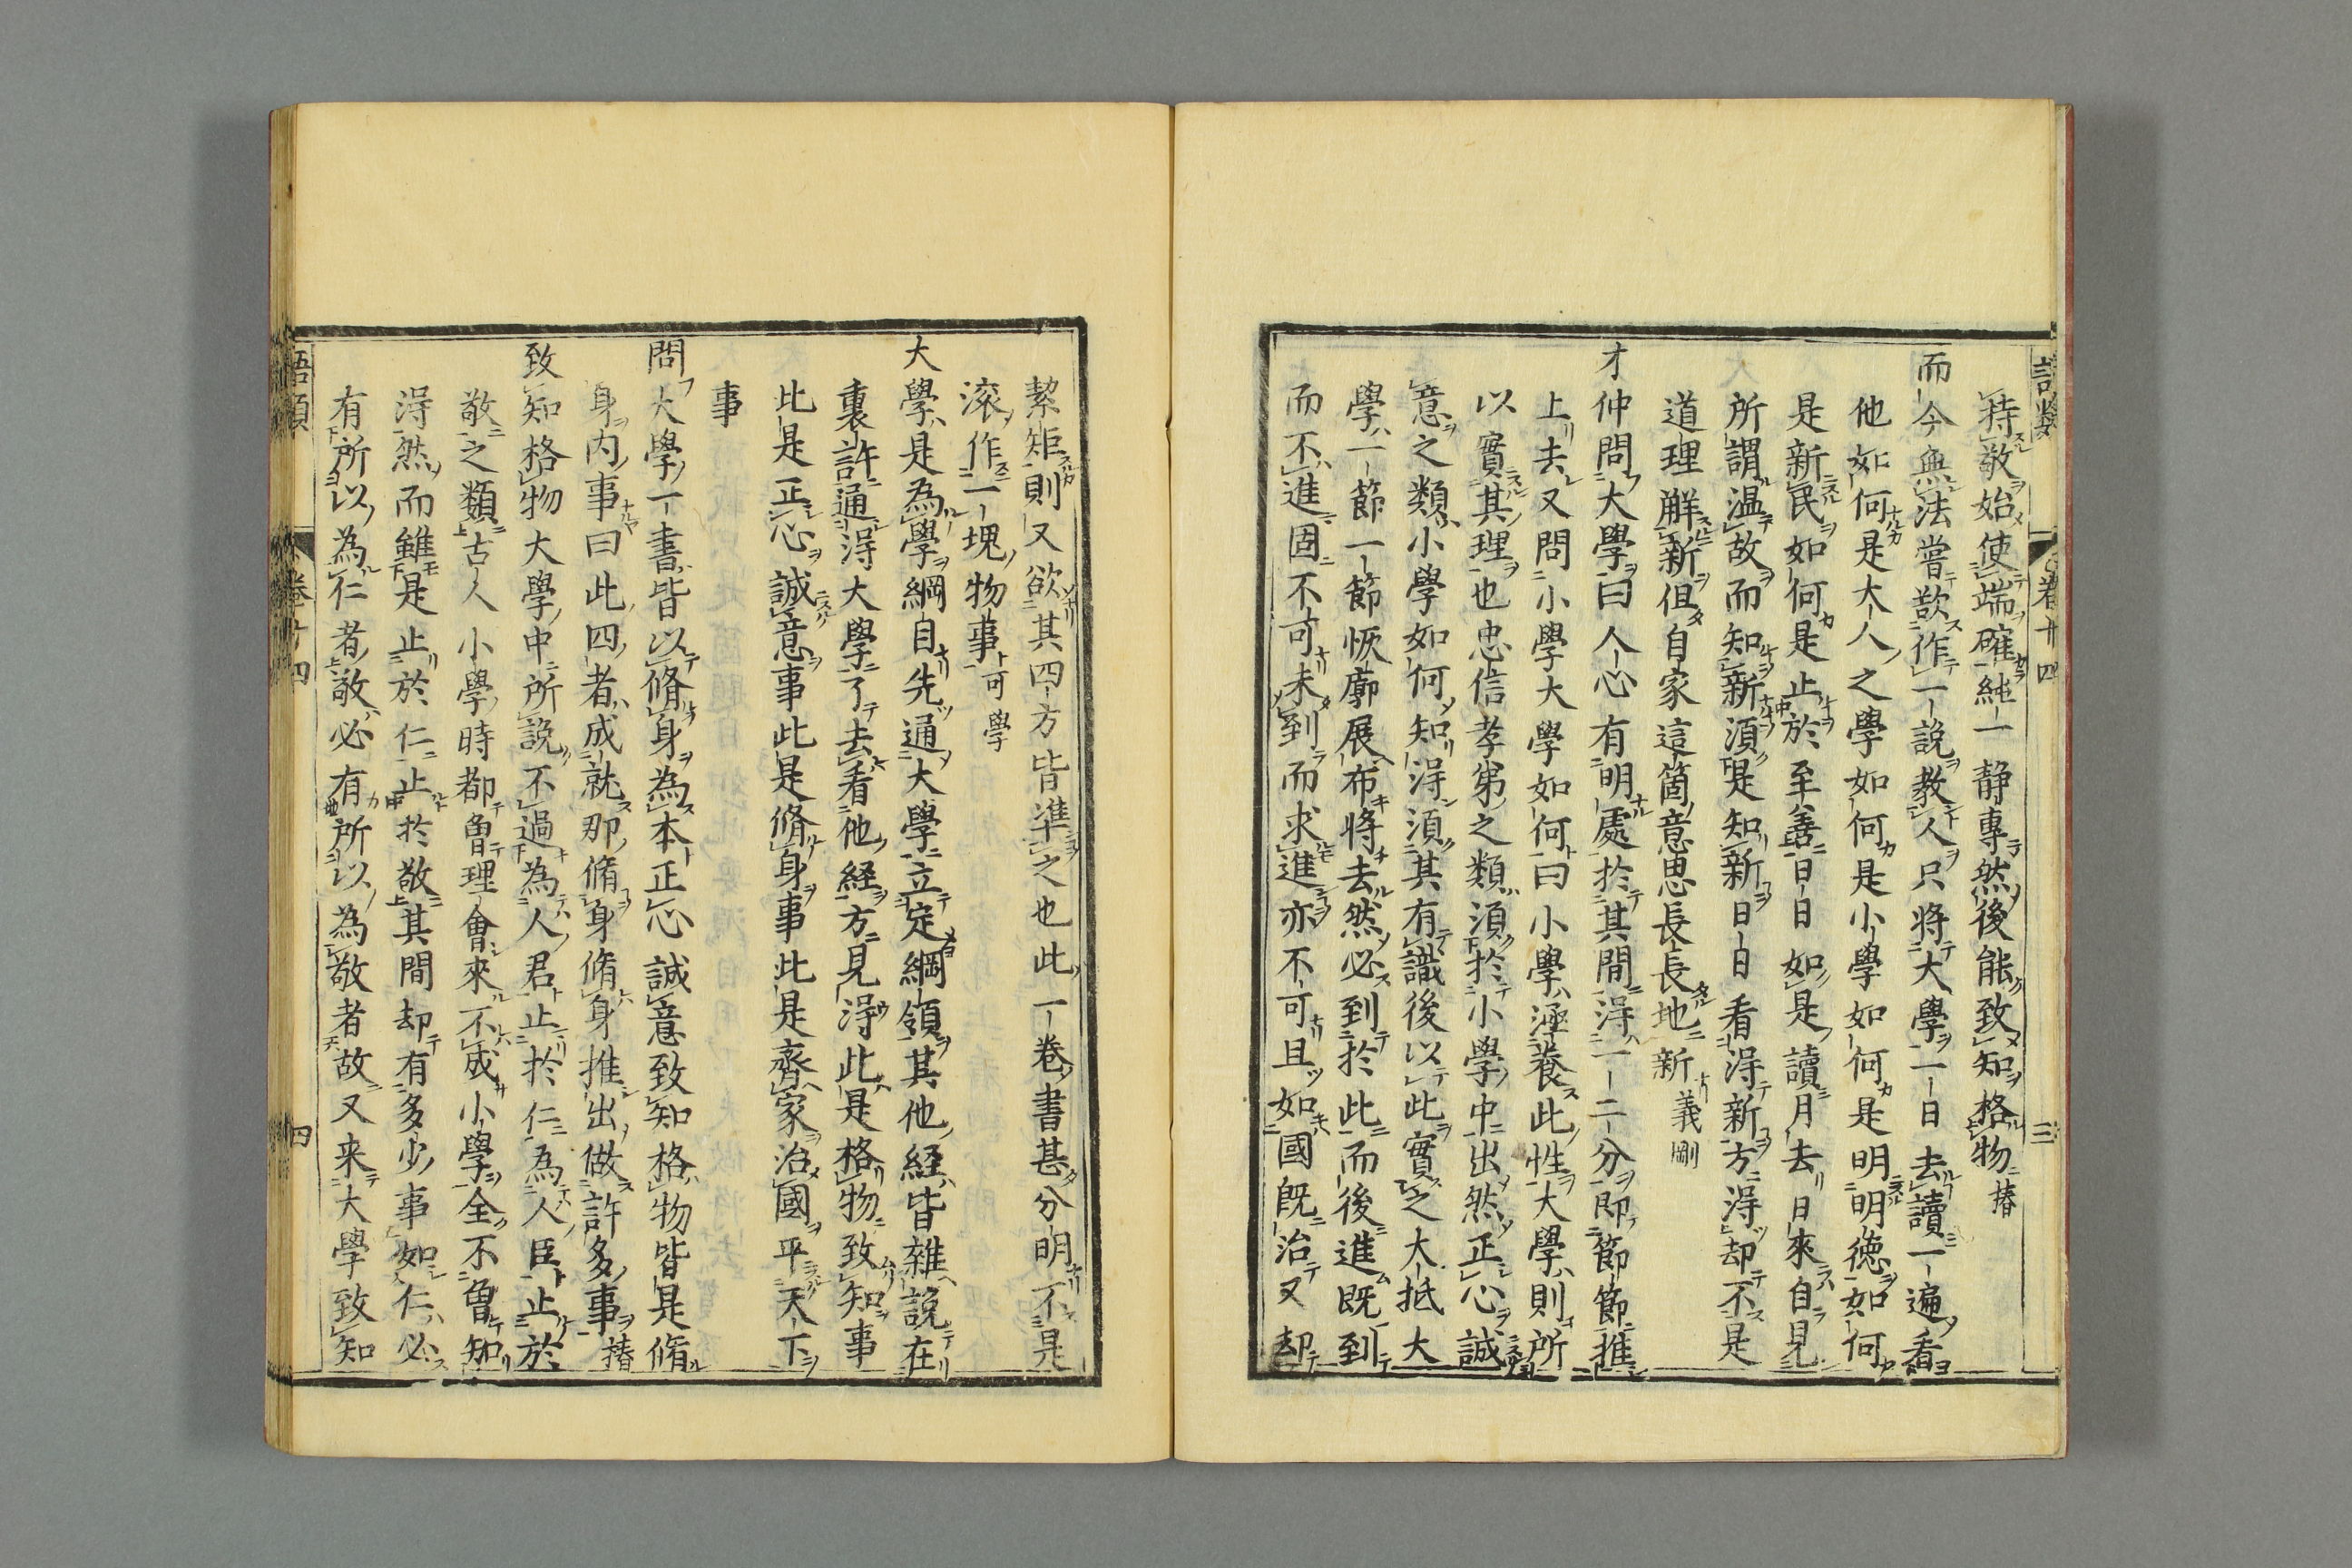 語類
卷十四
三
持敬始使端確純一靜專然後能致知格物椿
而今無法嘗欲作一說教人只將大學一日去讀一遍看
他如何是大人之學如何是小學如何是明明德如何
是新民如何是止於至善日日如是讀月去日來自見
所謂温故而知新湏是知新日日看淂新方淂却不是
道理解新但自家這箇意思長長地新義剛
才仲問大學曰人心有明處於其間淂一二分即節節推
上去又問小學大學如何曰小學涵養此性大學則所
以實其理也忠信孝弟之類湏於小學中出然正心誠
意之類小學如何知淂湏其有識後以此實之大抵大
學一節一節恢廓展布將去然必到於此而後進既到
而不進固不可未到而求進亦不可且如國既治又却
絜矩則又欲其四方皆準之也此一卷書甚分明不是
滚作一塊物事可學
大學是為學綱目先通大學立定綱領其他経皆雜說在
裏許通淂大學了去看他経方見淂此是格物致知事
此是正心誠意事此是脩身事此是齊家治國平天下
事
問大學一書皆以脩身為本正心誠意致知格物皆是脩
身内事曰此四者成就那脩身脩身推出做許多事椿
致知格物大學中所說不過為人君止於仁為人臣止於
敬之類古人小學時都曾理會來不成小學全不曾知
淂然而雖是止於仁止於敬其間却有多少事如仁必
有所以為仁者敬必有所以為敬者故又来大學致知
語類
卷十四
四